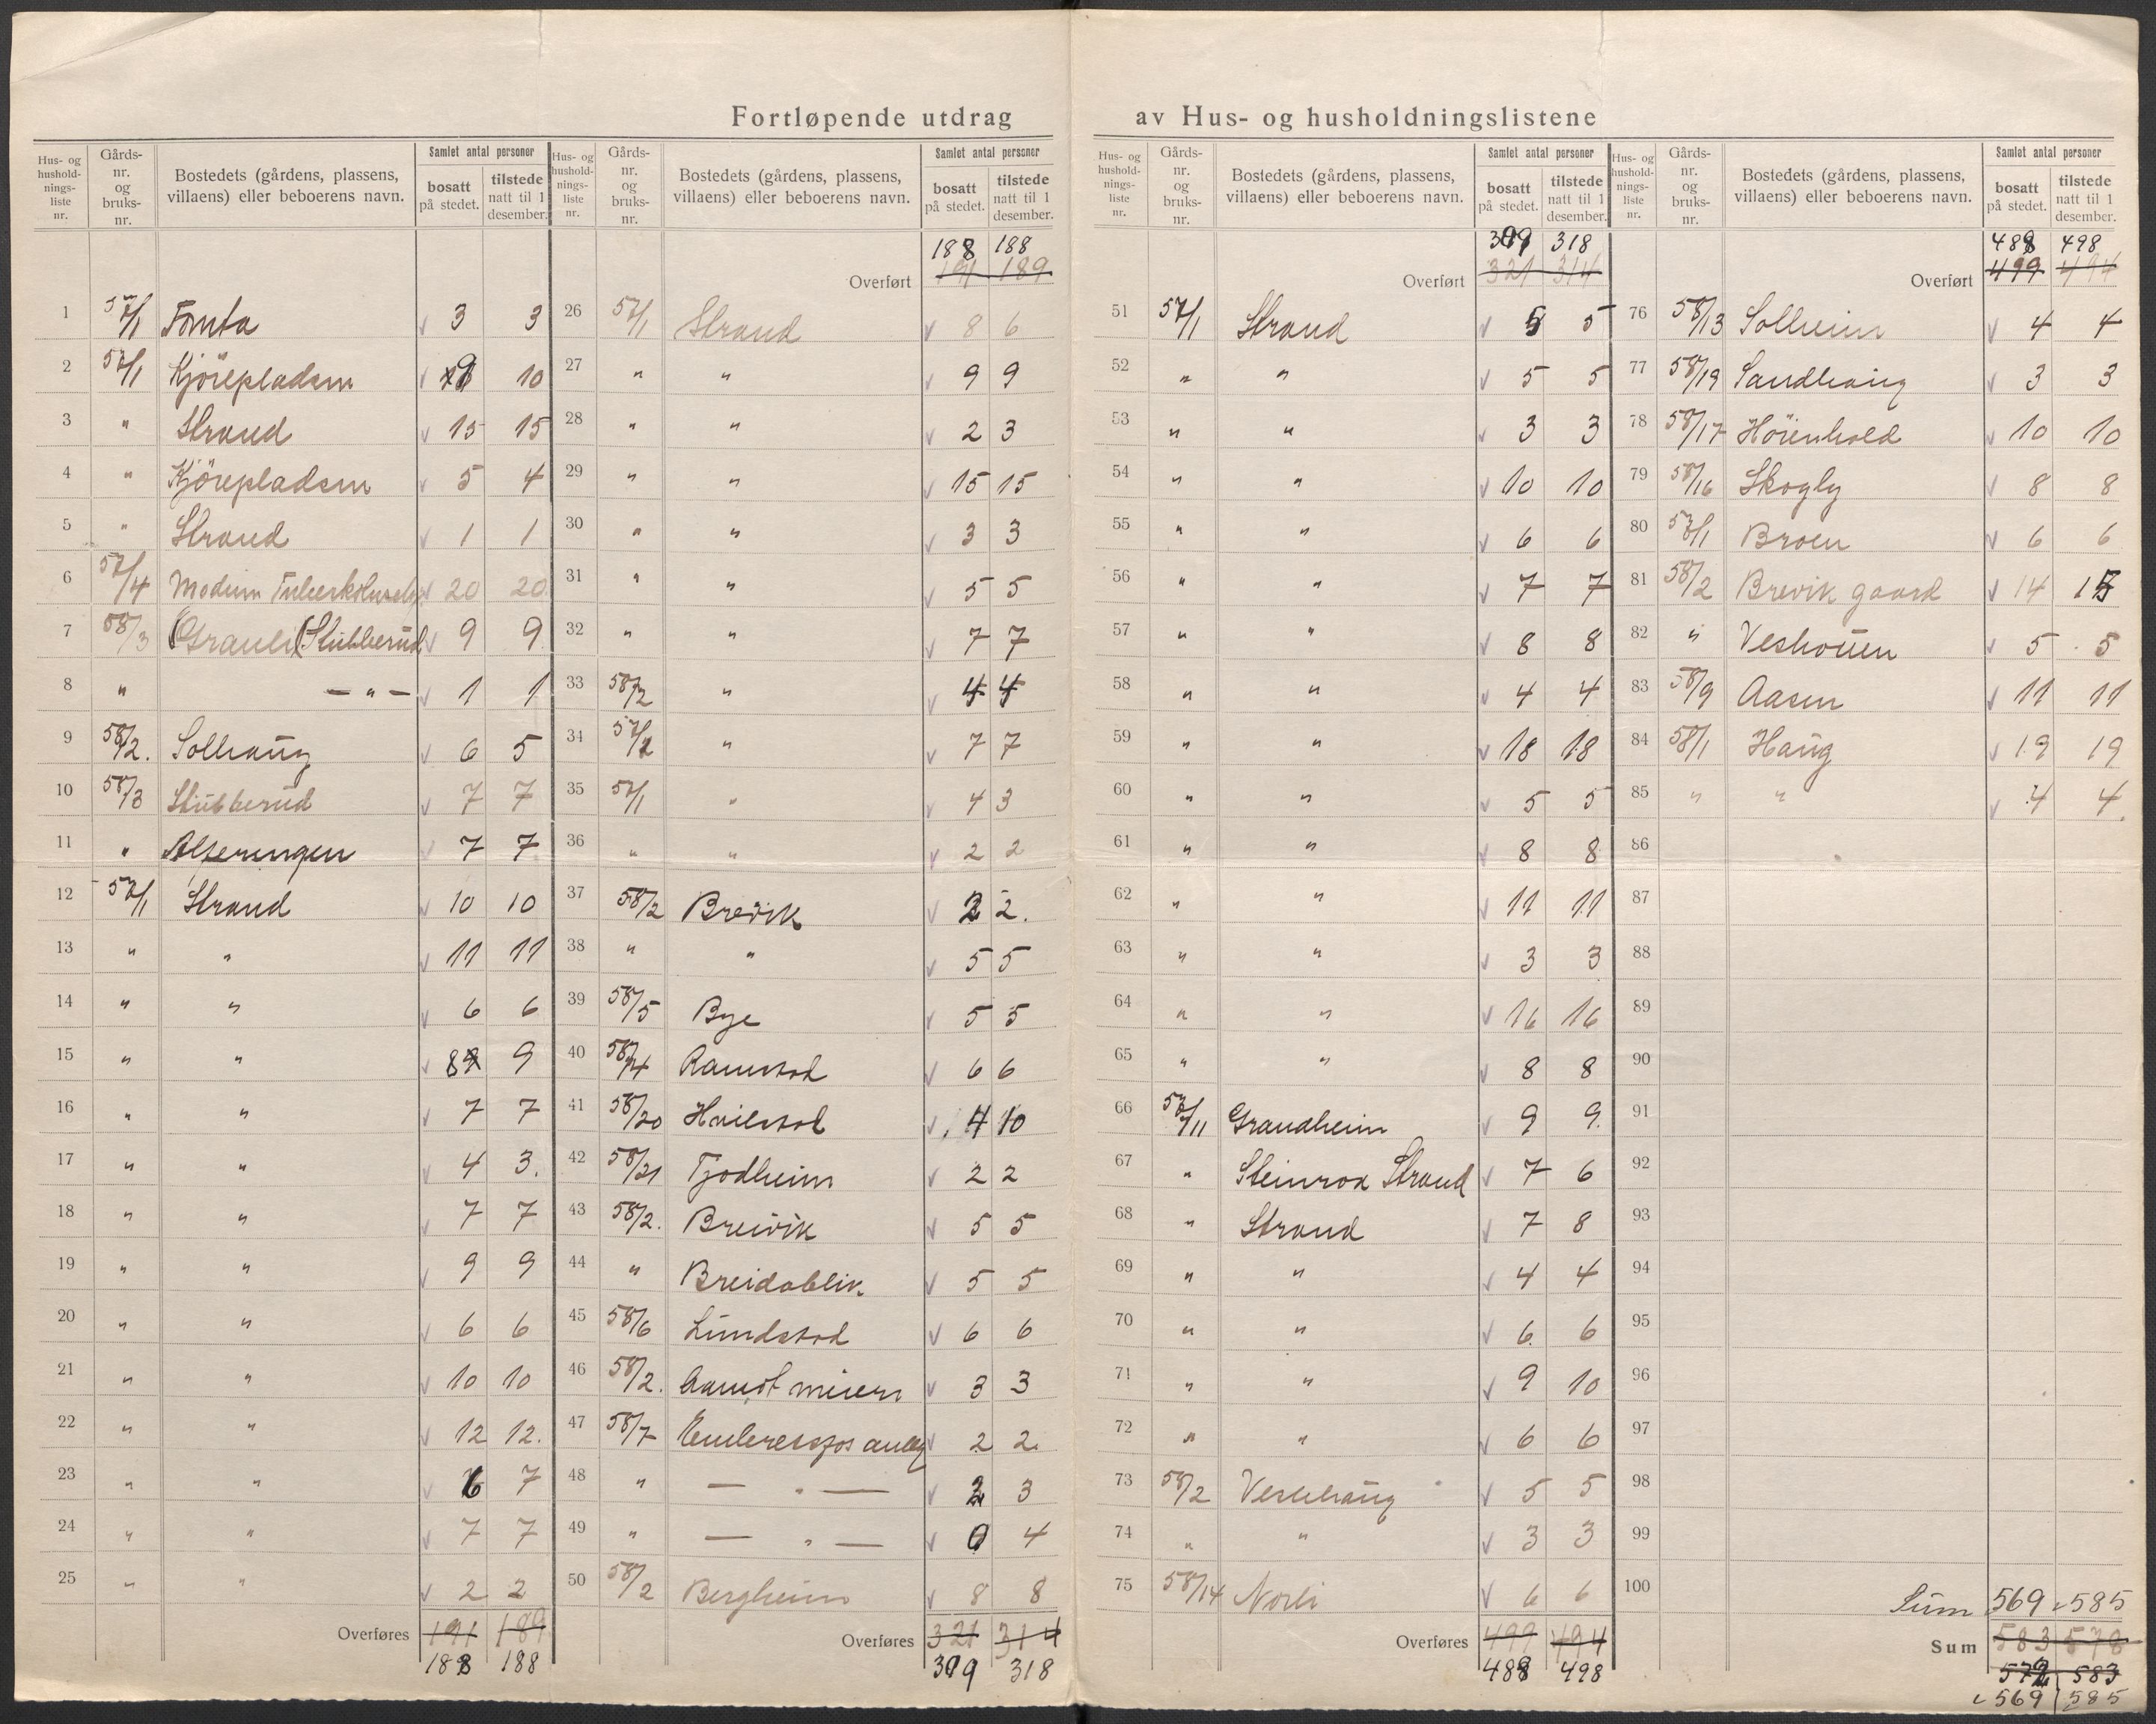 Fortløpende utdrag av Hus- og husholdningslistene
Hus- og husholdningsliste nr. | Gårds-nr. og bruks-nr. | Bostedets (gårdens, plassens, villaens) eller beboerens navn. | Samlet antal personer | bosatt på stedet. | tilstede natt til 1 desember.
1 57/1 Tomta 3 3
2 57/1 Kjörepladsen 9 10
3 " Strand 15 15
4 " Kjörepladsen 5 4
5 " Strand 1 1
6 57/4 Modum 20 20
7 58/3 Grauli (Stubberud 9 9
8 " — " — 1 1
9 58/2. Solhaug 6 5
10 58/3 Stubberud 7 7
11 " 7 7
12 57/1 Strand 10 10
13 " " 11 11
14 " " 6 6
15 " " 8 9
16 " " 7 7
17 " " 4 3.
18 " " 7 7
19 " " 9 9
20 " " 6 6
21 " " 10 10
22 " " 12 12.
23 " " 6 7
24 " " 7 7
25 " " 2 2
Overføres 191 189
188 188
Hus- og husholdningsliste nr. | Gårds-nr. og bruks-nr. | Bostedets (gårdens, plassens, villaens) eller beboerens navn. | Samlet antal personer | bosatt på stedet. | tilstede natt til 1 desember.
188 188
Overført 191 189
26 57/1 Strand 8 6
27 " " 9 9
28 " " 2 3
29 " " 15 15
30 " " 3 3
31 " " 5 5
32 " " 7 7
33 58/2 " 4 4
34 57/2 " 7 7
35 57/1 " 4 3
36 " " 2 2
37 58/2 Brevik 2 2.
38 " " 5 5
39 58/5 Bye 5 5
40 58/4 Ramstad 6 6
41 58/20 4 10
42 58/21 Tjodheim 2 2
43 58/2. Breivik 5 5
44 " Breidablik 5 5
45 58/6 Lundstad 6 6
46 58/2. 3 3
47 58/7 2 2
48 " — " — 2 3
49 " — " — 0 4
50 58/2 Bergheim 8 8
Overføres 321 314
309 318
Hus- og husholdningsliste nr. | Gårds-nr. og bruks-nr. | Bostedets (gårdens, plassens, villaens) eller beboerens navn. | Samlet antal personer | bosatt på stedet. | tilstede natt til 1 desember.
309 318
Overført 321 314
51 57/1 Strand 5 5
52 " " 5 5
53 " " 3 3
54 " " 10 10
55 " " 6 6
56 " " 7 7
57 " " 8 8
58 " " 4 4
59 " " 18 18
60 " " 5 5
61 " " 8 8
62 " " 11 11
63 " " 3 3
64 " " 16 16
65 " " 8 8
66 57/11 Grandheim 9 9.
67 " Steinroa Strand 7 6
68 " Strand 7 8
69 " " 4 4
70 " " 6 6
71 " " 9 10
72 " " 6 6
73 58/2 Veslehaug 5 5
74 " " 3 3
75 58/14 Norli 6 6
Overføres 499 494
488 498
Hus- og husholdningsliste nr. | Gårds-nr. og bruks-nr. | Bostedets (gårdens, plassens, villaens) eller beboerens navn. | Samlet antal personer | bosatt på stedet. | tilstede natt til 1 desember.
488 498
Overført 499 494
76 58/13 Solheim 4 4
77 58/19 Sandhaug 3 3
78 58/17 10 10
79 58/16 Skogly 8 8
80 57/1 Broen 6 6
81 58/2 Brevik gaard 14 15
82 " 5 5
83 58/9 Aasen 11 11
84 58/1 Haug 19 19
85 " " 4 4.
86
87
88
89
90
91
92
93
94
95
96
97
98
99
100
Sum 569 585
Sum 583 578
572 583
569 585